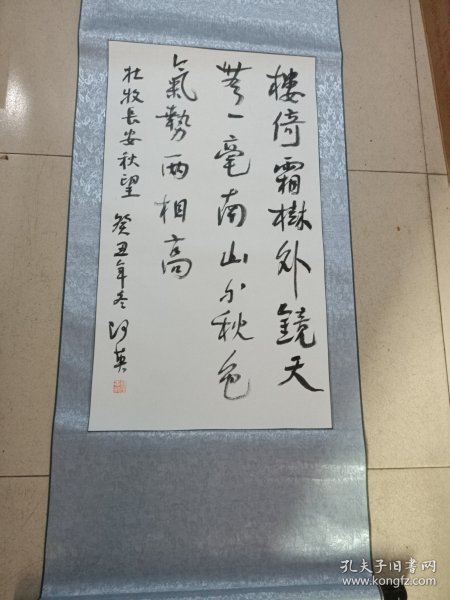 樓倚霜樹外鏡天
無一毫南山与秋色
氣勢两相高
杜牧長安秋望 癸丑年冬
孔夫子旧书网
www.kongfz.com